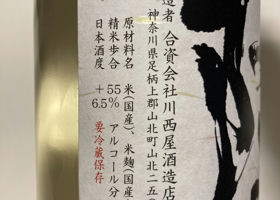 造者 合資会社川西屋酒造店
神奈川県足柄上郡山北町山北二五
原材料名 米(国産)、米麹(国産
精米歩合 55% アルコール分
日本酒度 +6.5 要冷蔵保存